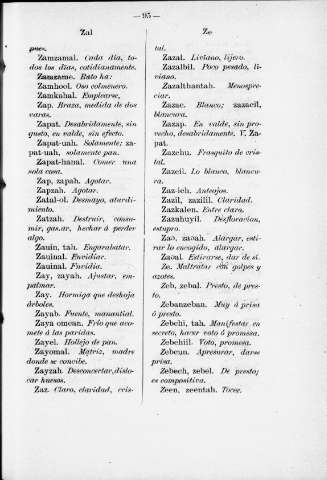 — 95 —
Zal
pues.
Zamzamal. Cada dia, to-
dos los dias, cotidianamente.
Zamzame. Rato ha:
Zamhool. Oso colmenero.
Zamkahal. Emplearse,
Zap. Braza, medida de dos
varas.
Zapat. Desabridamente, sin
gusto, en valde, sin efecto.
Zapat-uah. Solamente; za-
pat-uah, solamente pan.
Zapat-hanal. Comer una
sola cosa.
Zap, zapah. Agotar.
Zapzah. Agotar.
Zatal-ol. Desmayo, aturdi-
miento.
Zatzah. Destruir, consu-
mir, gastar, hechar á perder
algo.
Zauin, tah. Engarabatar.
Zauinal. Envidiar.
Zauinal. Envidia.
Zay, zayah. Ajustar, em-
palmar.
Zay. Hormiga que deshoja
árboles.
Zayab. Fuente, manantial.
Zaya omcan. Frio que aco-
mete á las paridas.
Zayel. Hollejo de pan.
Zayomal. Matriz, madre
donde se concibe.
Zayzah. Desconcertar, dislo-
car huesos.
Zaz. Claro, claridad, cris-
Ze
tal.
Zazal. Liviano, lijero.
Zazalbil. Poco pesado, li-
viano.
Zazalthantah. Menospre-
ciar.
Zazac. Blanco; zazacil,
blancura.
Zazap. En valde, sin pro-
vecho, desabridamente. V. Za-
pat.
Zazchu. Frasquito de cris-
tal.
Zazcil. Lo blanco, blancu-
ra.
Zaz-ich. Anteojos.
Zazil, zazilil. Claridad.
Zazkalen. Entre claro.
Zazuhuyil. Desfloracion,
estupro.
Zaɔ, zaɔah. Alargar, esti-
rar lo encogido, alargar.
Zaɔal. Estirarse, dar de sí.
Ze. Maltratar con golpes y
azotes.
Zeb, zebal. Presto, de pres-
to.
Zebanzeban. Muy á prisa
ó presto.
Zebchi, tah. Manifestar en
secreto, hacer voto ó promesa.
Zebchiil. Voto, promesa.
Zebcun. Apresurar, darse
prisa.
Zebech, zebel. De presto;
es compositiva.
Zeen, zeentah. Tocer.